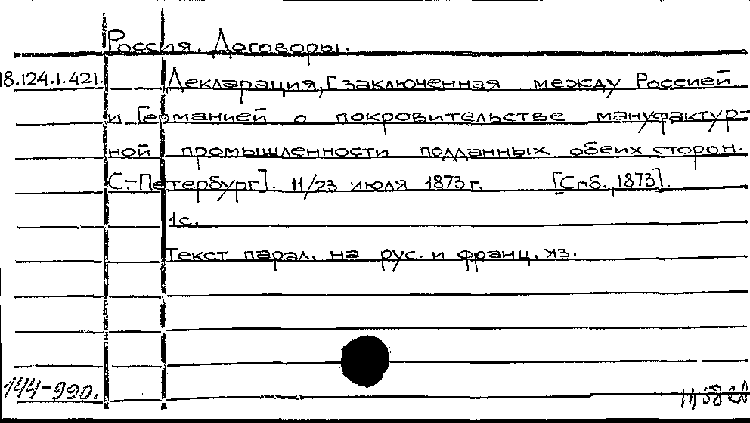 Россия. Договоры.
18.124.1.421. Декларация, [заключенная между Россией
и Германией о покровительстве мануфактур-
ной промышленности подданных обеих сторон.
С-Петербург]. 11/23 июля 1873 г. [Спб., 1873].
1с.
Текст парал. на рус. и франц. яз.
144-990.